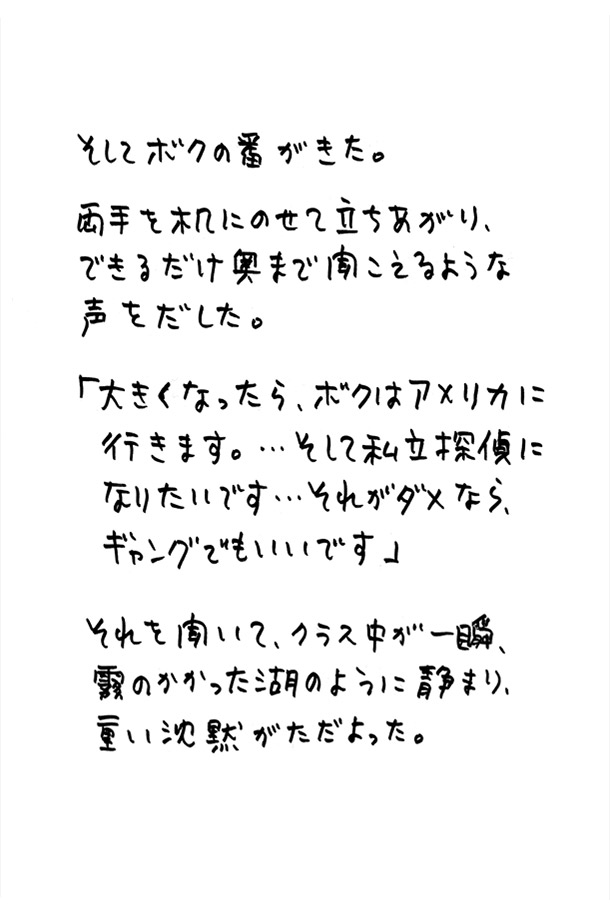 そしてボクの番がきた。
両手を机にのせて立ちあがり、
できるだけ奥まで聞こえるような
声をだした。
「大きくなったら、ボクはアメリカに
行きます。…そして私立探偵に
なりたいです…それがダメなら、
ギャングでもいいです」
それを聞いて、クラス中が一瞬、
霧のかかった湖のように静まり、
重い沈黙がただよった。